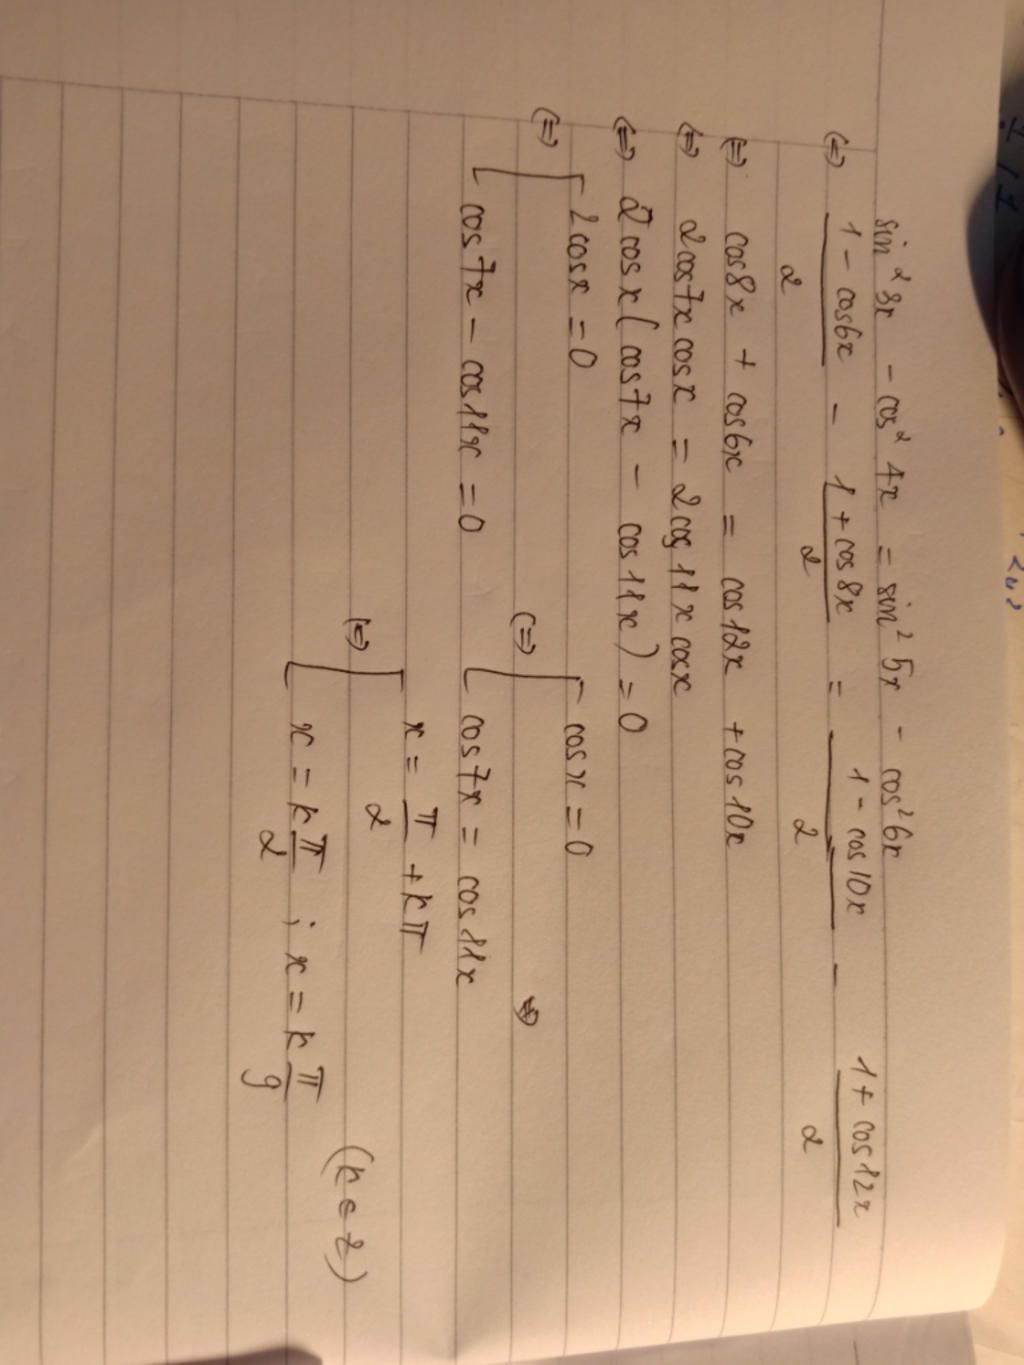 sin² 3x - cos² 4x = sin² 5x - cos² 6x
(=) (1 - cos6x)/2 - (1 + cos8x)/2 = (1 - cos10x)/2 - (1 + cos12x)/2
(=) cos8x + cos6x = cos12x + cos10x
(=) 2cos7x cosx = 2cos11x cosx
(=) 2cosx(cos7x - cos11x) = 0
(=) [ 2cosx = 0 (=) [ cosx = 0
cos7x - cos11x = 0 cos7x = cos11x (=)
(=) [ x = π/2 + kπ
x = k π/2 ; x = k π/9 (k ∈ Z)